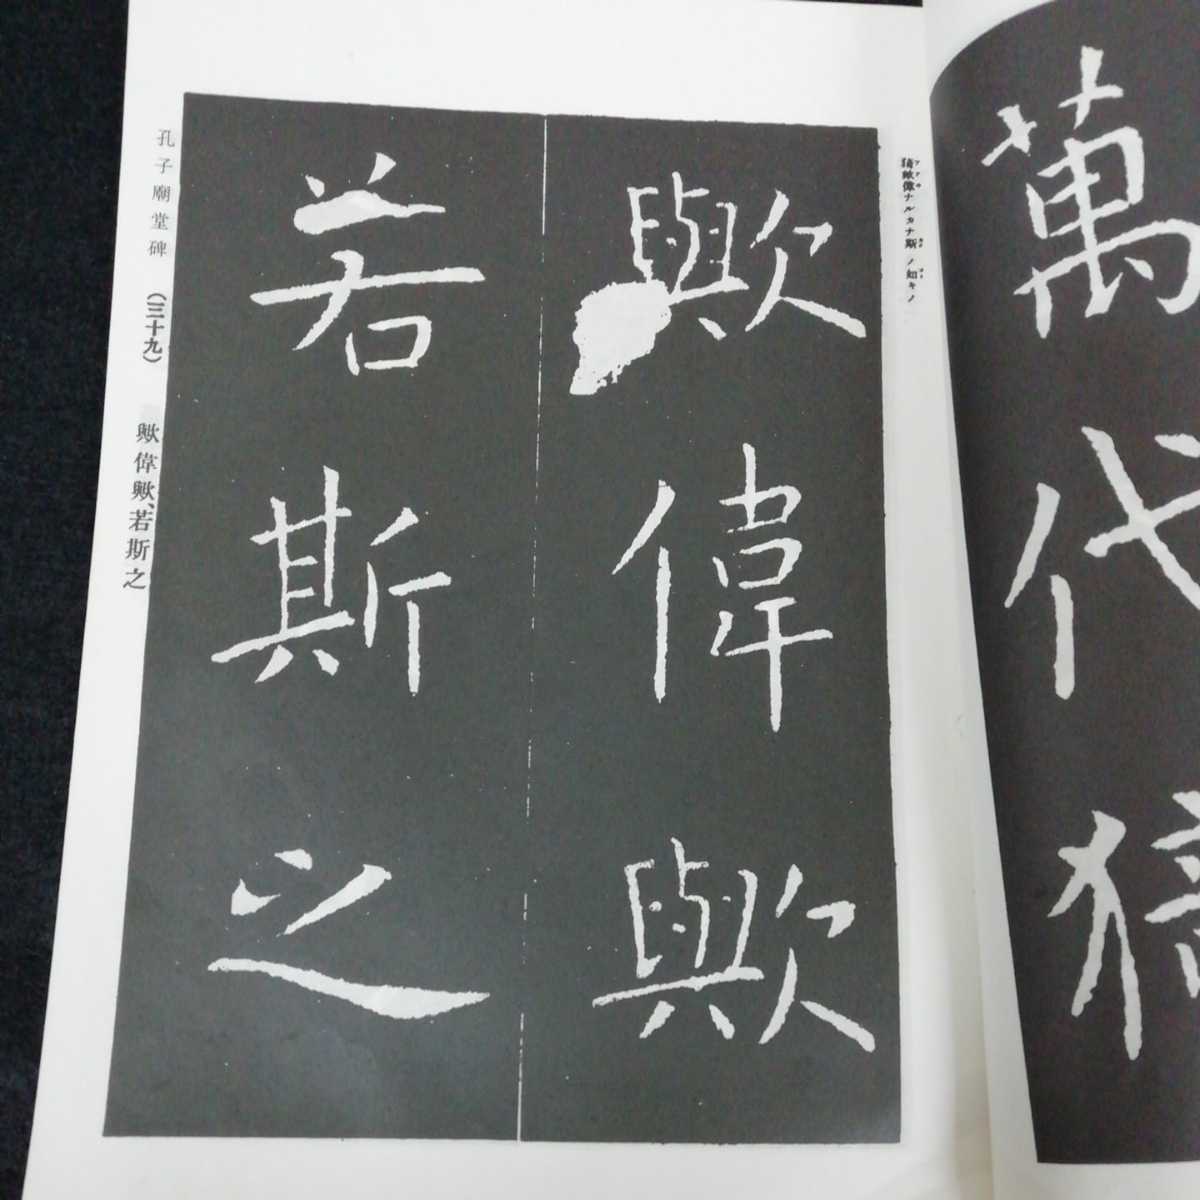 萬代猗
猗歟偉ナルカナ斯ノ如キノ
歟偉歟
若斯之
孔子廟堂碑 (三十九) 歟偉歟、若斯之